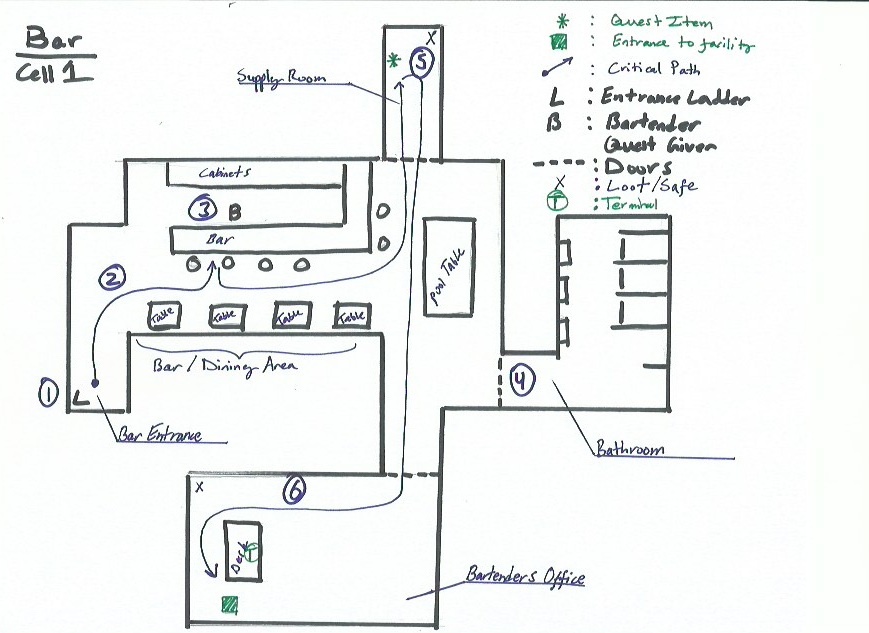 Bar
Cell 1
* : Quest Item
: Entrance to facility
: Critical Path
L : Entrance Ladder
B : Bartender
Quest Giver
---- : Doors
X : Loot/Safe
T : Terminal
X
5
Supply Room
Cabinets
3 B
Bar
2
Pool Table
Table
Table
Table
Table
Bar / Dining Area
1
L
4
Bar Entrance
Bathroom
X
6
Desk
T
Bartenders Office